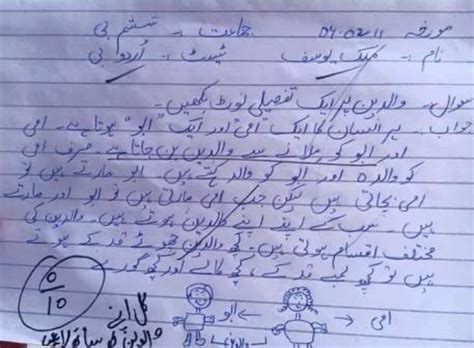 مورخہ 09.02.11 جماعت :- ہشتم بی
نام :- مہک یوسف ٹیسٹ :- اُردو بی
سوال:- والدین پر ایک تفصیلی نوٹ لکھیں۔
جواب:- ہر انسان کا ایک "امی" اور ایک "ابو" ہوتا ہے۔ امی
اور ابو کو ملانے سے والدین بن جاتا ہے۔ صرف امی
کو والدہ اور ابو کو والد کہتے ہیں۔ ابو مارتے ہیں تو
امی بچاتی ہیں لیکن جب امی مارتی ہیں تو ابو اور مارتے
ہیں۔ سب کے اپنے اپنے والدین ہوتے ہیں۔ والدین کی
مختلف اقسام ہوتی ہیں۔ کچھ والدین چھوٹے قد کے ہوتے
ہیں تو کچھ لمبے قد کے، کچھ کالے اور کچھ گورے
0/10
کل اپنے
والدین کو ساتھ لائیں
ابو
والدین
امی